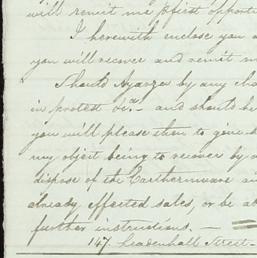 will remit me pr first opportu
I herewith enclose you a
you will recover and remit m
Should Ayarza by any cha
in protest &ca. – and should he
you will please then to give h
my object being to recover by a
dispose of the Earthenware in
already effected sales, or be ab
further instructions. –
147 Leadenhall Street –